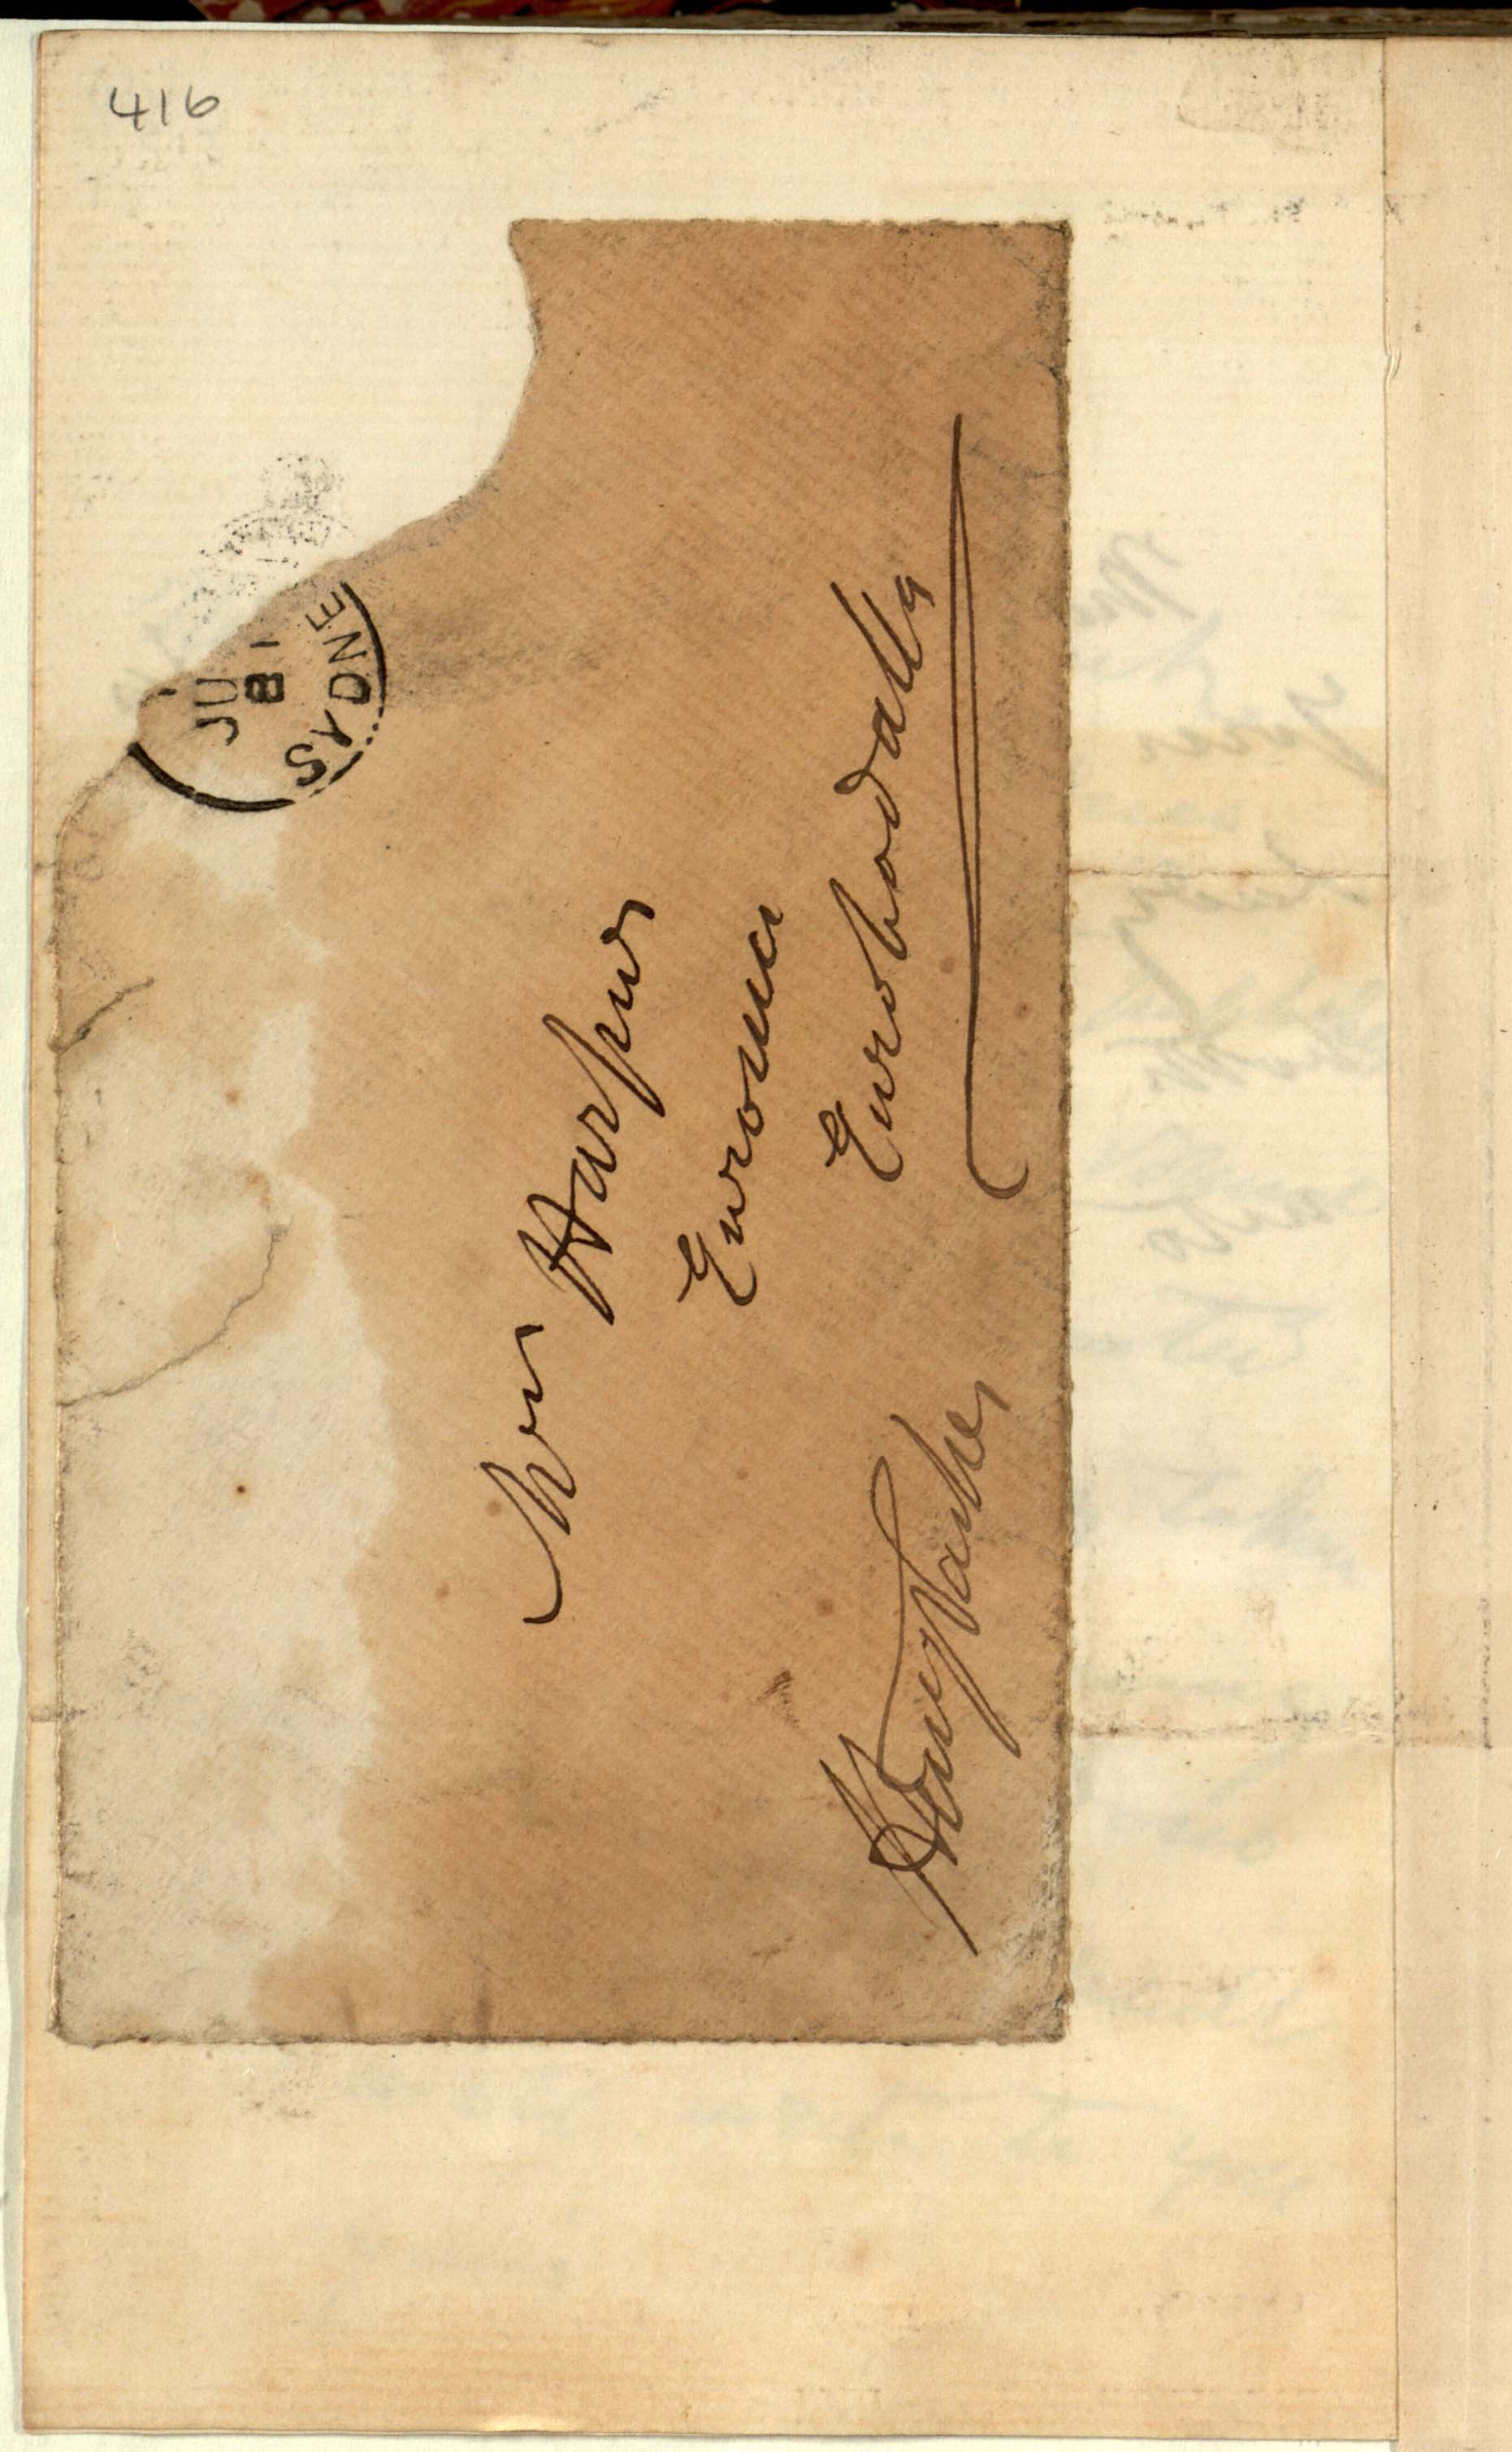 416
JU
81
SYDNE
Mrs Harpur
Euroma
Eurobodalla
Henry Parkes